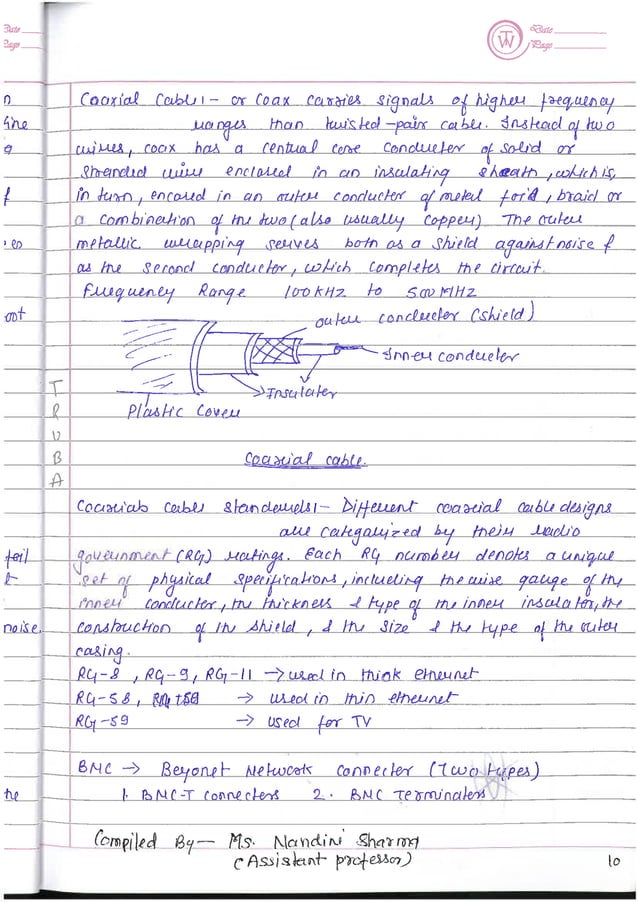 Date
Page
TW
Date
Page
Coaxial Cable :- or coax carries signals of higher frequency
ranges than twisted-pair cable. Instead of two
wires, coax has a central core conductor of solid or
stranded wire enclosed in an insulating sheath, which is,
in turn, encased in an outer conductor of metal foil, braid or
a combination of the two (also usually copper) The outer
metallic wrapping serves both as a shield against noise &
as the second conductor, which completes the circuit.
Frequency Range 100KHZ to 500MHZ
outer conductor (shield)
Inner conductor
Insulator
Plastic Cover
Coaxial cable.
T
R
U
B
A
Coaxial Cable Standards :- Different coaxial cable designs
are categorized by their radio
government (RG) ratings. Each RG number denotes a unique
set of physical specifications, including the wire gauge of the
inner conductor, the thickness & type of the inner insulator, the
construction of the shield, & the size & the type of the outer
casing.
RG-8, RG-9, RG-11 → used in thick ethernet
RG-58, → used in thin ethernet
RG-59 → used for TV
BNC → Beyonet Network connector (Two types)
1. BNC-T connectors 2. BNC Terminators
Compiled By — Ms. Nandini Sharma
(Assistant professor)
10
n
line
a
f
oot
foil
&
noise.
he